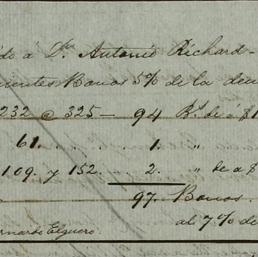 do a Dn. Antonio Richard-
Bonos 5% de la deu
232 @ 325 — 94 Rs. de a $1
61. 1. "
109. y 152. 2. " de a $
97. Bonos.
al 7% de
Elguero.